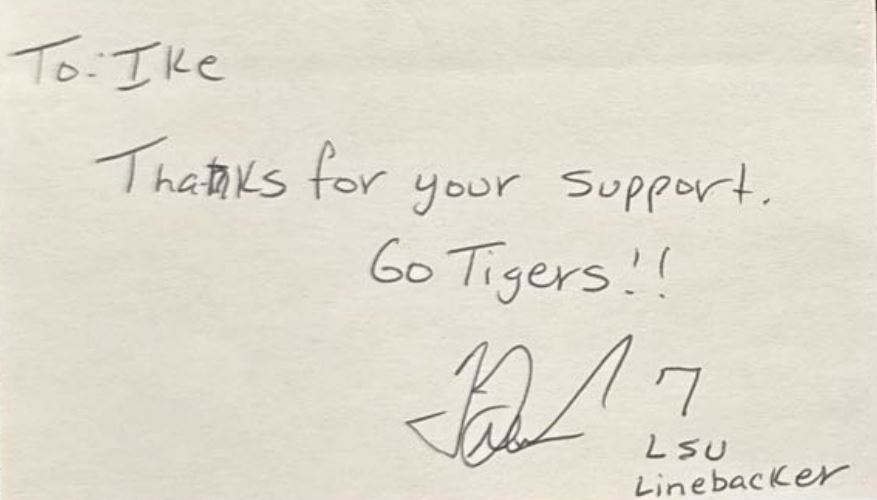 To: Ike
Thanks for your support.
Go Tigers!!
7
LSU
Linebacker